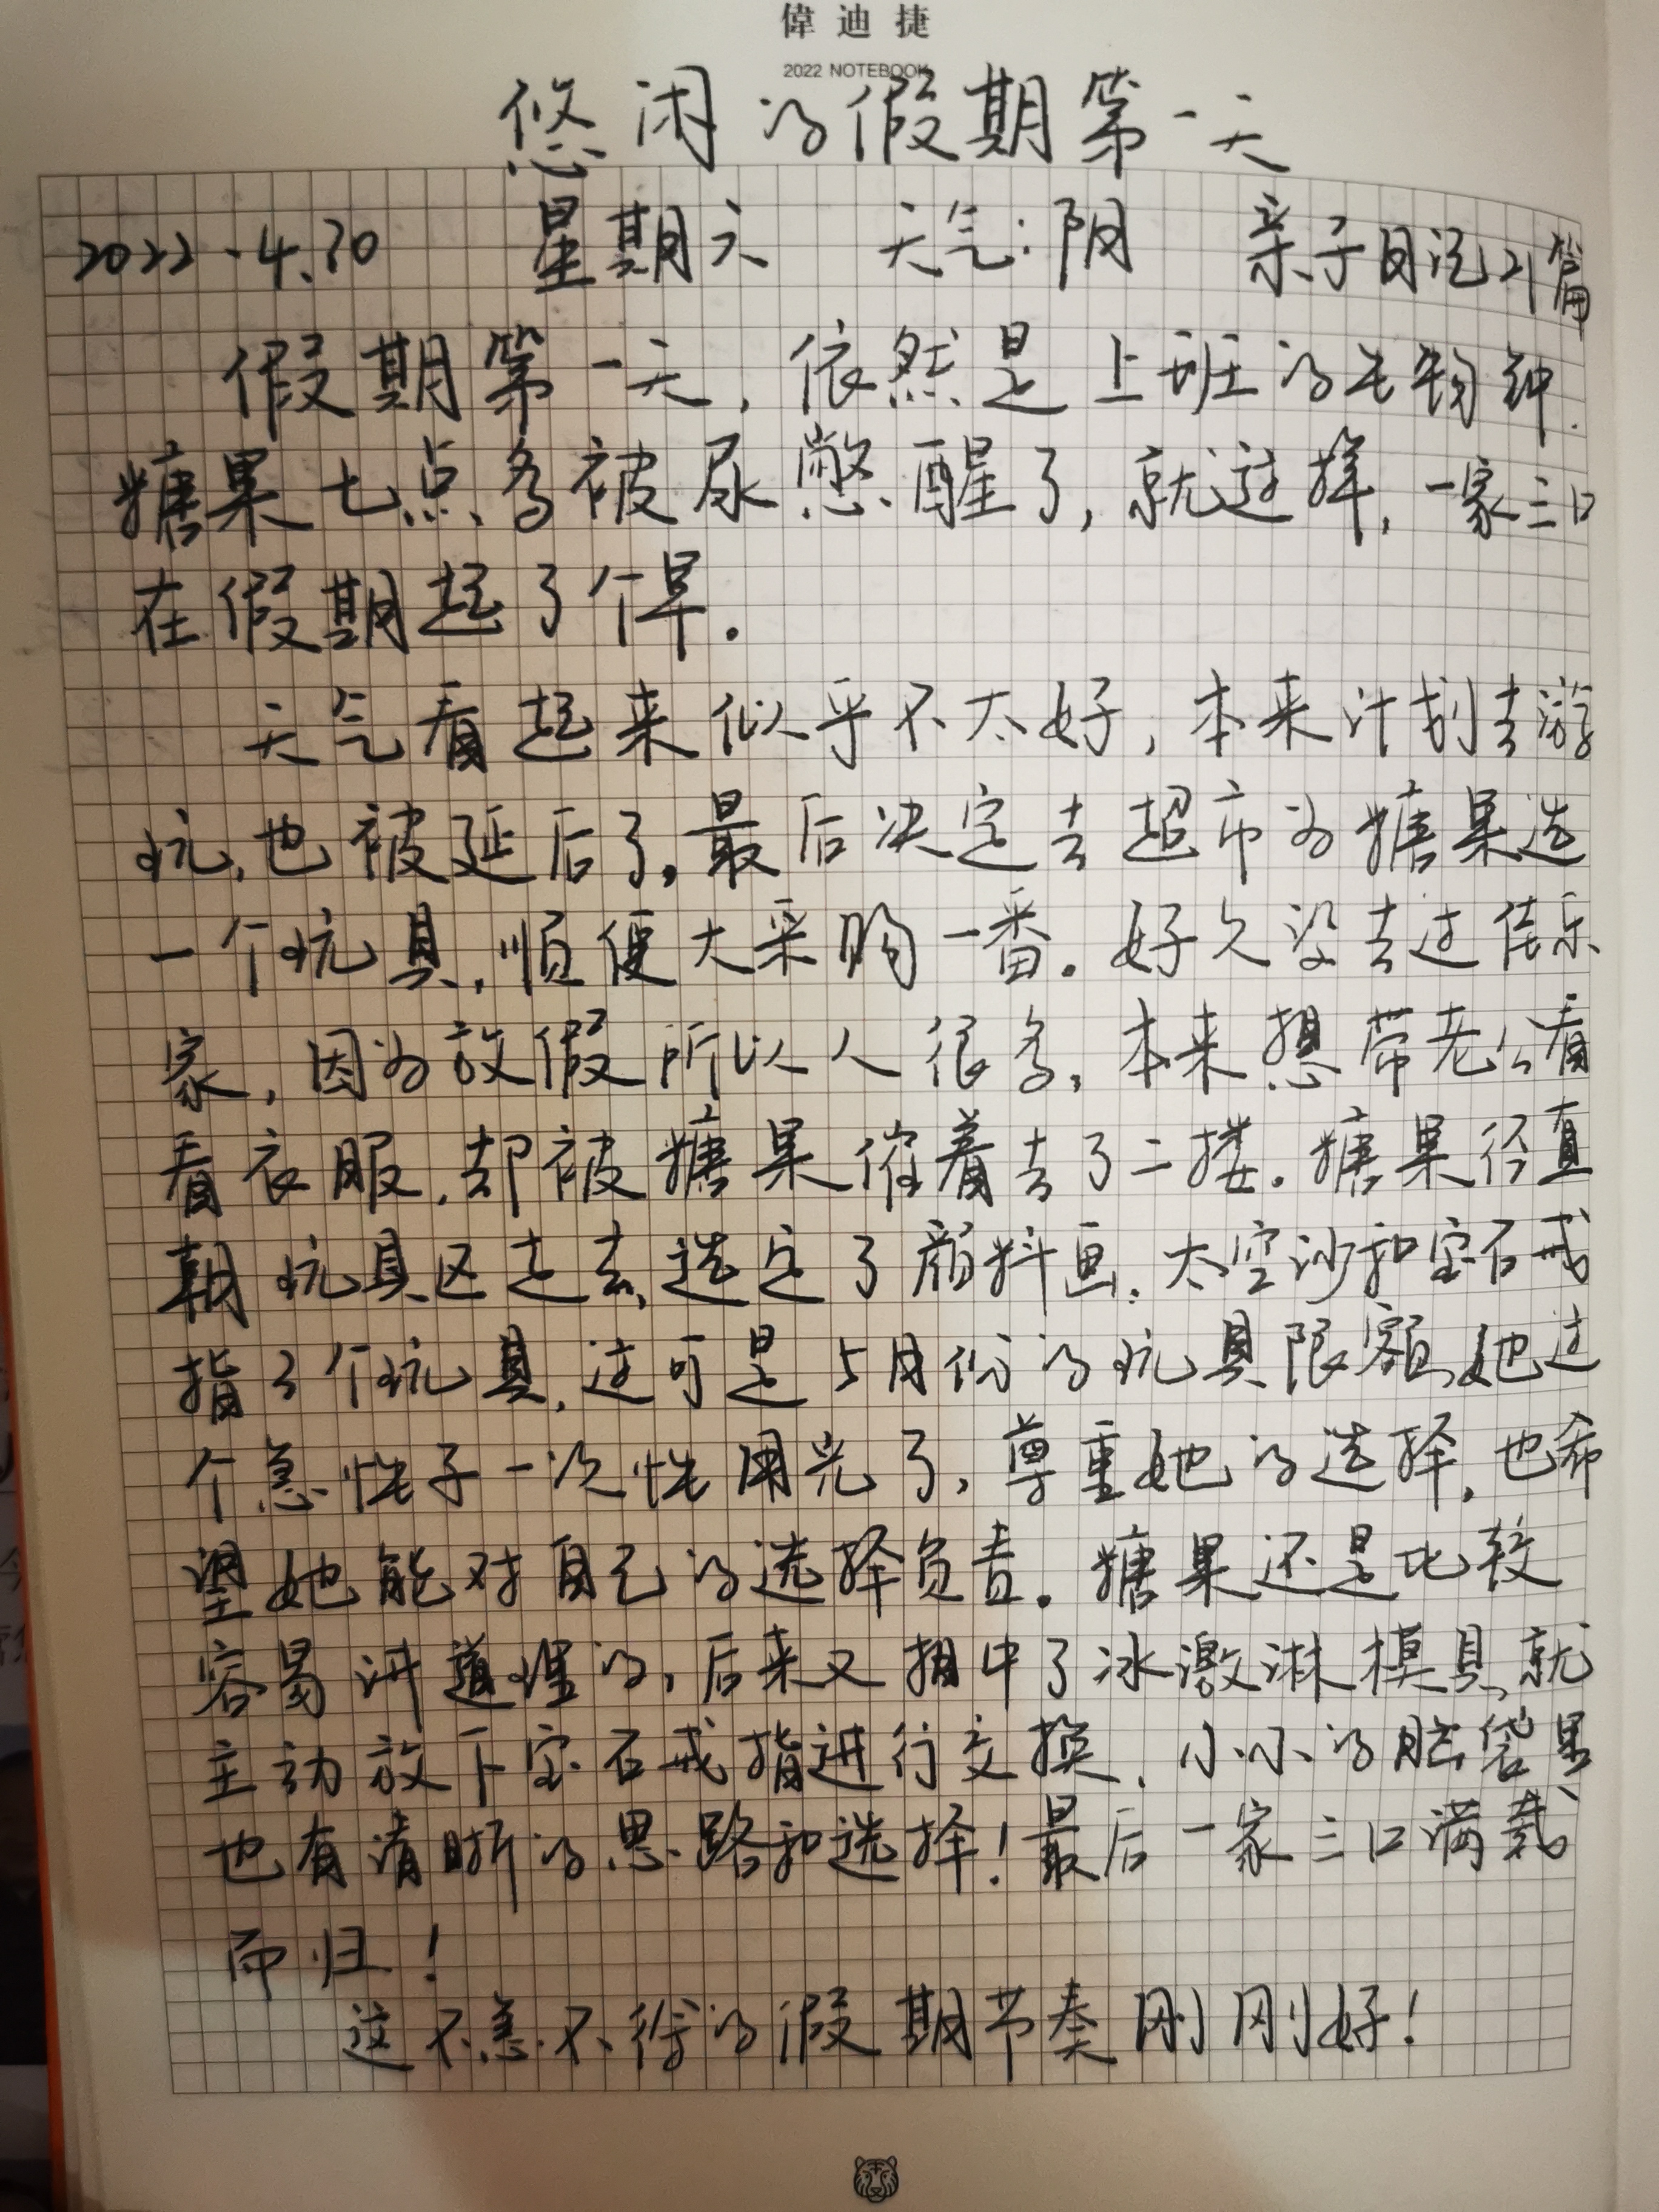 偉迪捷
2022 NOTEBOOK
悠闲的假期第一天
2022.4.30 星期六 天气:阴 亲子日记21篇
假期第一天,依然是上班的生物钟.
糖果七点多被尿憋醒了,就这样,一家三口
在假期起了个早.
天气看起来似乎不太好,本来计划去游
玩,也被延后了,最后决定去超市为糖果选
一个玩具,顺便大采购一番.好久没去过佳乐
家,因为放假所以人很多,本来想带老公看
看衣服,却被糖果催着去了二搂.糖果径直
朝玩具区走去,选定了颜料画.太空沙和宝石戒
指3个玩具,这可是5月份的玩具限额,她这
个急性子一次性用光了,尊重她的选择,也希
望她能对自己的选择负责.糖果还是比较
容易讲道理的,后来又相中了冰激淋模具,就
主动放下宝石戒指进行交换,小小的脑袋里
也有清晰的思路和选择!最后一家三口满载
而归!
这不急不徐的假期节奏刚刚好!